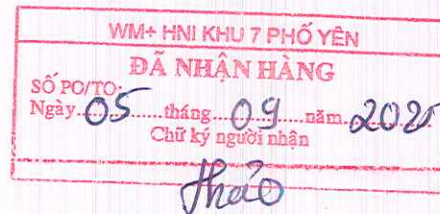 WM+ HNI KHU 7 PHỐ YÊN
ĐÃ NHẬN HÀNG
SỐ PO/TO:
Ngày 05 tháng 09 năm 2025
Chữ ký người nhận
Thảo